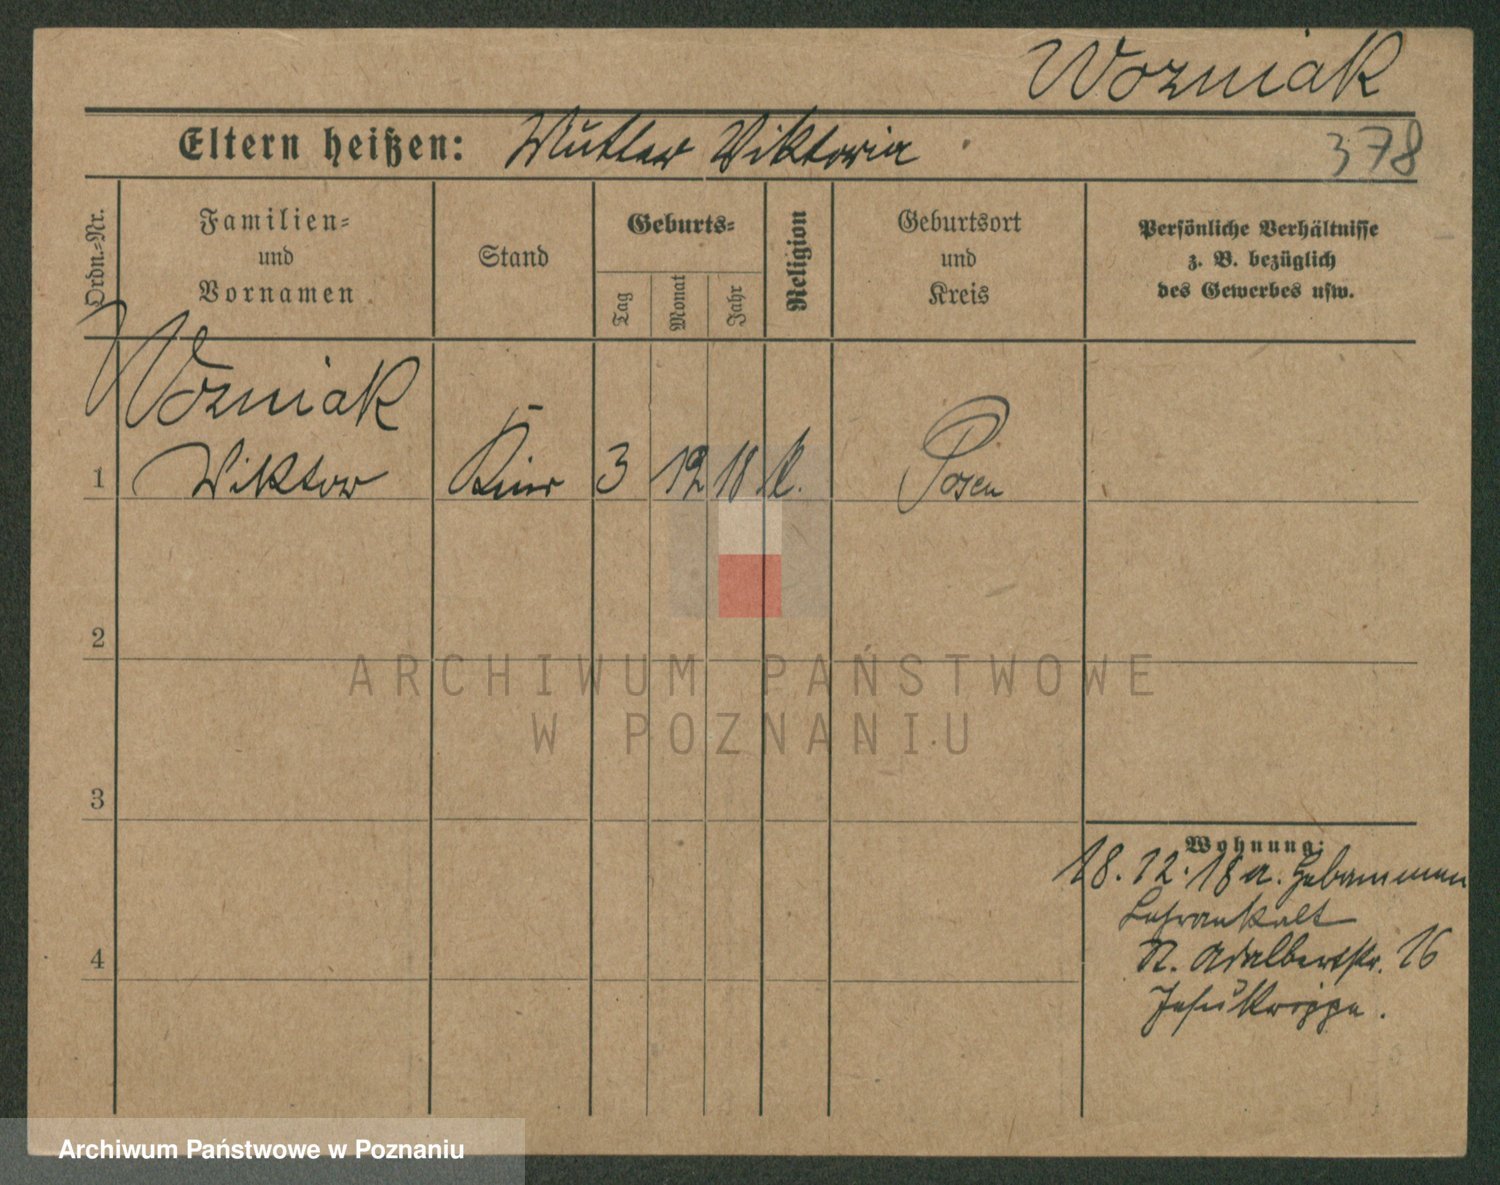 Wozniak
Eltern heißen: Mutter Viktoria
378
Ordn.-Nr.
Familien-
und
Vornamen
Stand
Geburts-
Tag
Monat
Jahr
Religion
Geburtsort
und
Kreis
Persönliche Verhältnisse
z. B. bezüglich
des Gewerbes usw.
Wozniak
1 Viktor 3 12 18 k. Posen
2
ARCHIWUM PAŃSTWOWE
W POZNANIU
3
4
Wohnung:
18.12.18 a. Hebammen
Lehranstalt
St. Adalbertstr. 16
Jesu Krippe.
Archiwum Państwowe w Poznaniu